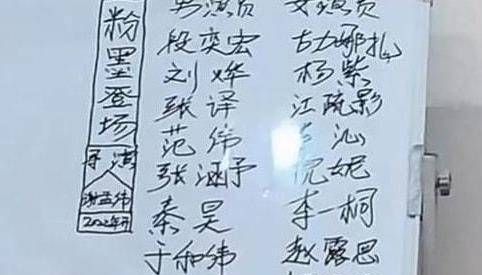 粉墨登场
导演
谢孟伟
2022年
男演员 女演员
段奕宏 古力娜扎
刘烨 杨紫
张译 江疏影
范伟 李沁
张涵予 倪妮
秦昊 李一桐
于和伟 赵露思